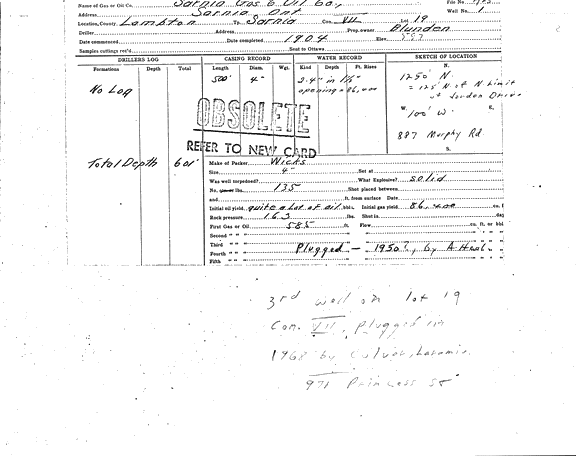 Name of Gas or Oil Co. Sarnia Gas & Oil Co., File No.
Address Sarnia Ont Well No. 1
Location, County Lambton Tp. Sarnia Con. VII Lot 19
Driller Address Prop. owner Blunden
Date commenced Date completed 1904 Elev. 597
Samples cuttings rec'd Sent to Ottawa
DRILLERS LOG CASING RECORD WATER RECORD SKETCH OF LOCATION
Formations Depth Total Length Diam. Wgt. Kind Depth Ft. Rises N.
500' 4" 2.4" in 1½" 1250' N.
No Log opening = 86,400 = 125' N. of N. Limit
of London Drive
W. E.
100' W.
OBSOLETE
887 Murphy Rd.
REFER TO NEW CARD
S.
Total Depth 601' Make of Packer Wicks
Size 4" Set at
Was well torpedoed? What Explosive? solid
No. lbs. 135 Shot placed between
and ft. from surface Date
Initial oil yield quite a lot of oil bbls. Initial gas yield 86,400 cu. f
Rock pressure 163 lbs. Shut in day
First Gas or Oil 585 ft. Flow cu. ft. or bbl
Second " "
Third " " Plugged - 1950?, by A
Fourth " "
Fifth " "
3rd well on lot 19
Con. VII, Plugged in
1968 by
971 Princess St